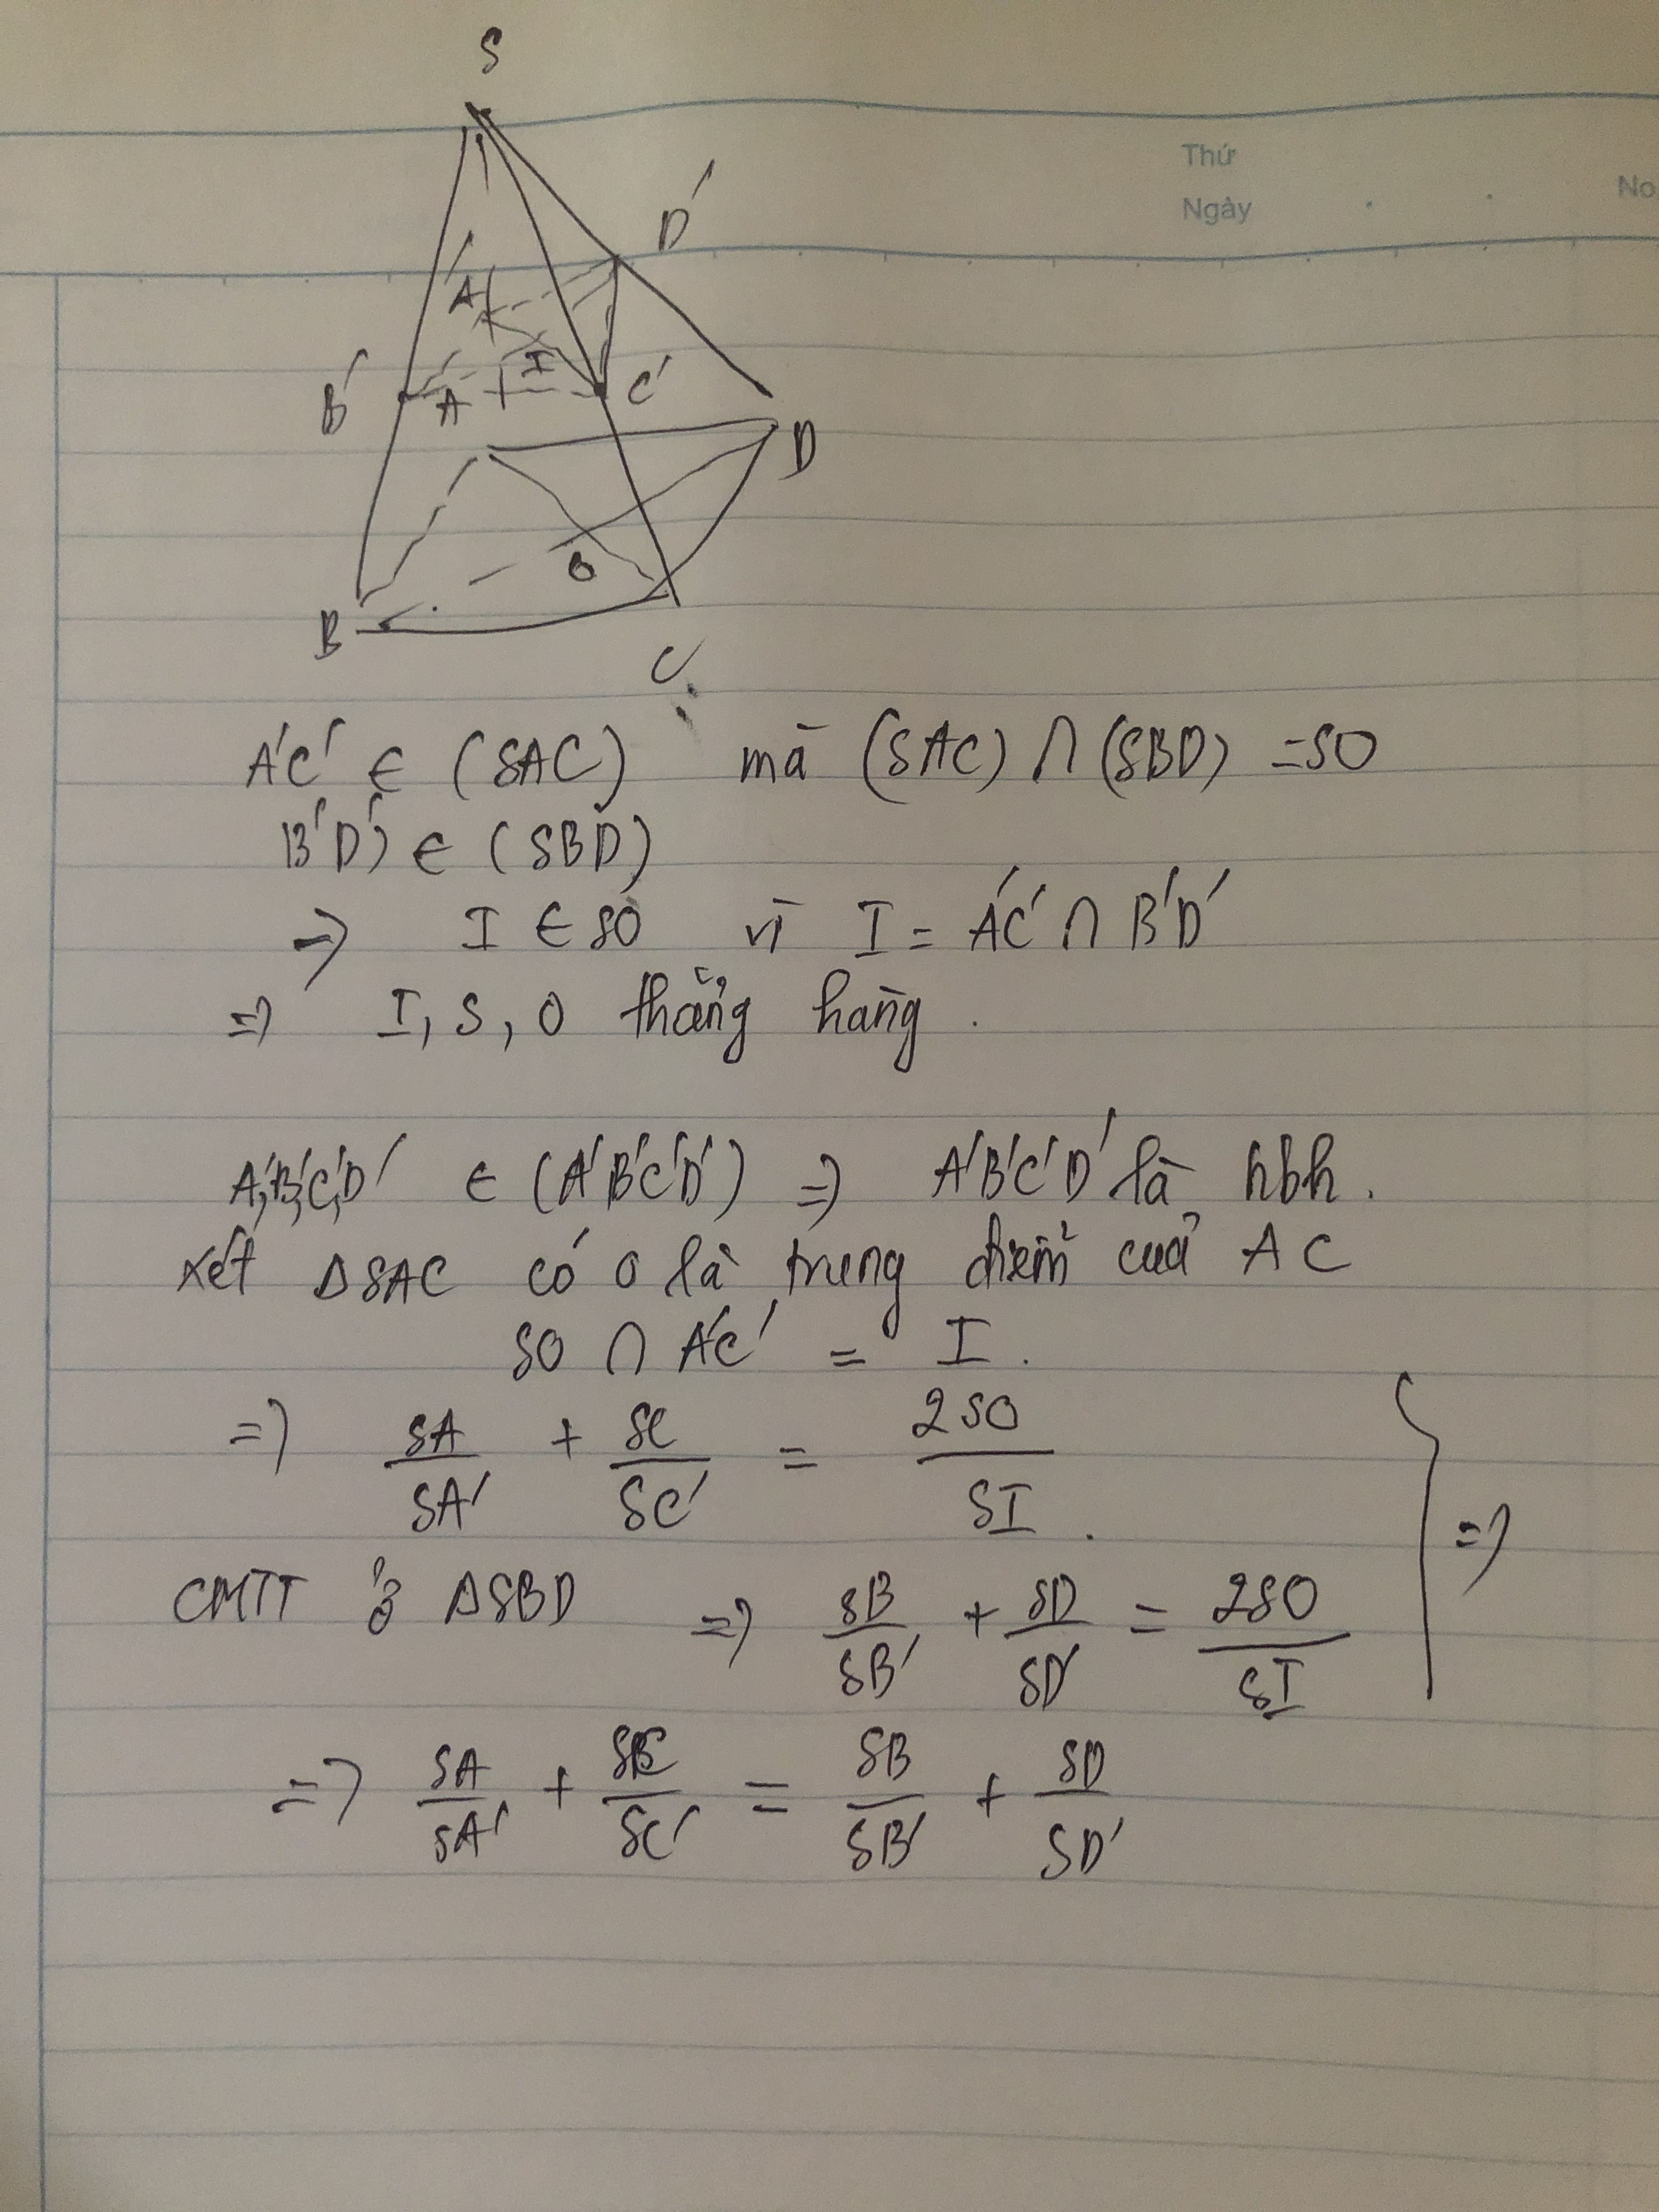 S
Thứ
No.
Ngày
D'
A'
I
B'
A
C'
D
O
B
C
A'C' ∈ (SAC) mà (SAC) ∩ (SBD) = SO
B'D' ∈ (SBD)
=> I ∈ SO vì I = A'C' ∩ B'D'
=> I, S, O thẳng hàng.
A', B', C', D' ∈ (A'B'C'D') => A'B'C'D' là hbh.
Xét ΔSAC có O là trung điểm của AC
SO ∩ A'C' = I.
=> SA/SA' + SC/SC' = 2SO/SI.
CMTT ở ΔSBD => SB/SB' + SD/SD' = 2SO/SI } =>
=> SA/SA' + SC/SC' = SB/SB' + SD/SD'